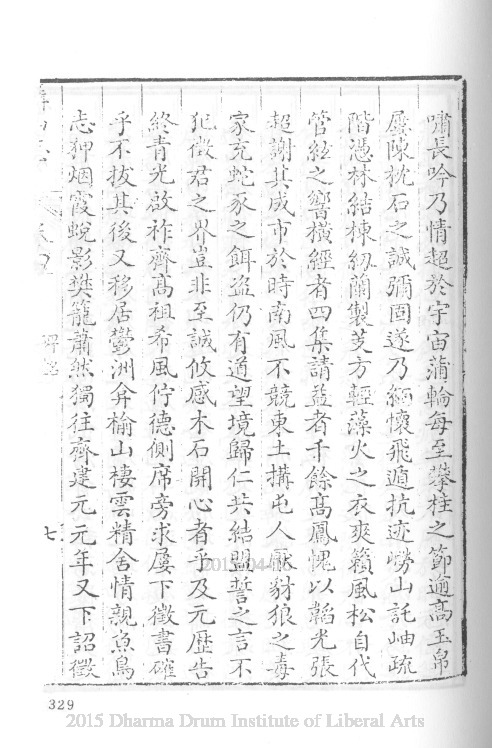 嘯長吟乃情超於宇宙蒲輪每至攀桂之節逾高玉帛
屢陳枕石之誠彌固遂乃緬懷飛遁抗迹嶗山託岫疏
階憑林結棟紉蘭製芰方輕藻火之衣爽籟風松自代
管絃之響橫經者四集請益者千餘高鳳愧以韜光張
超謝其成市於時南風不競東土搆屯人厭豺狼之毒
家充蛇豕之餌盜仍有道望境歸仁共結盟誓之言不
犯徵君之界豈非至誠攸感木石開心者乎及元歷告
終青光啟祚齊高祖希風佇德側席旁求屢下徵書確
乎不拔其後又移居鬱洲弇榆山棲雲精舍情親魚鳥
志狎烟霞蛻影樊籠肅然獨往齊建元元年又下詔徵
碑銘
七
2015/04/16
329
2015 Dharma Drum Institute of Liberal Arts